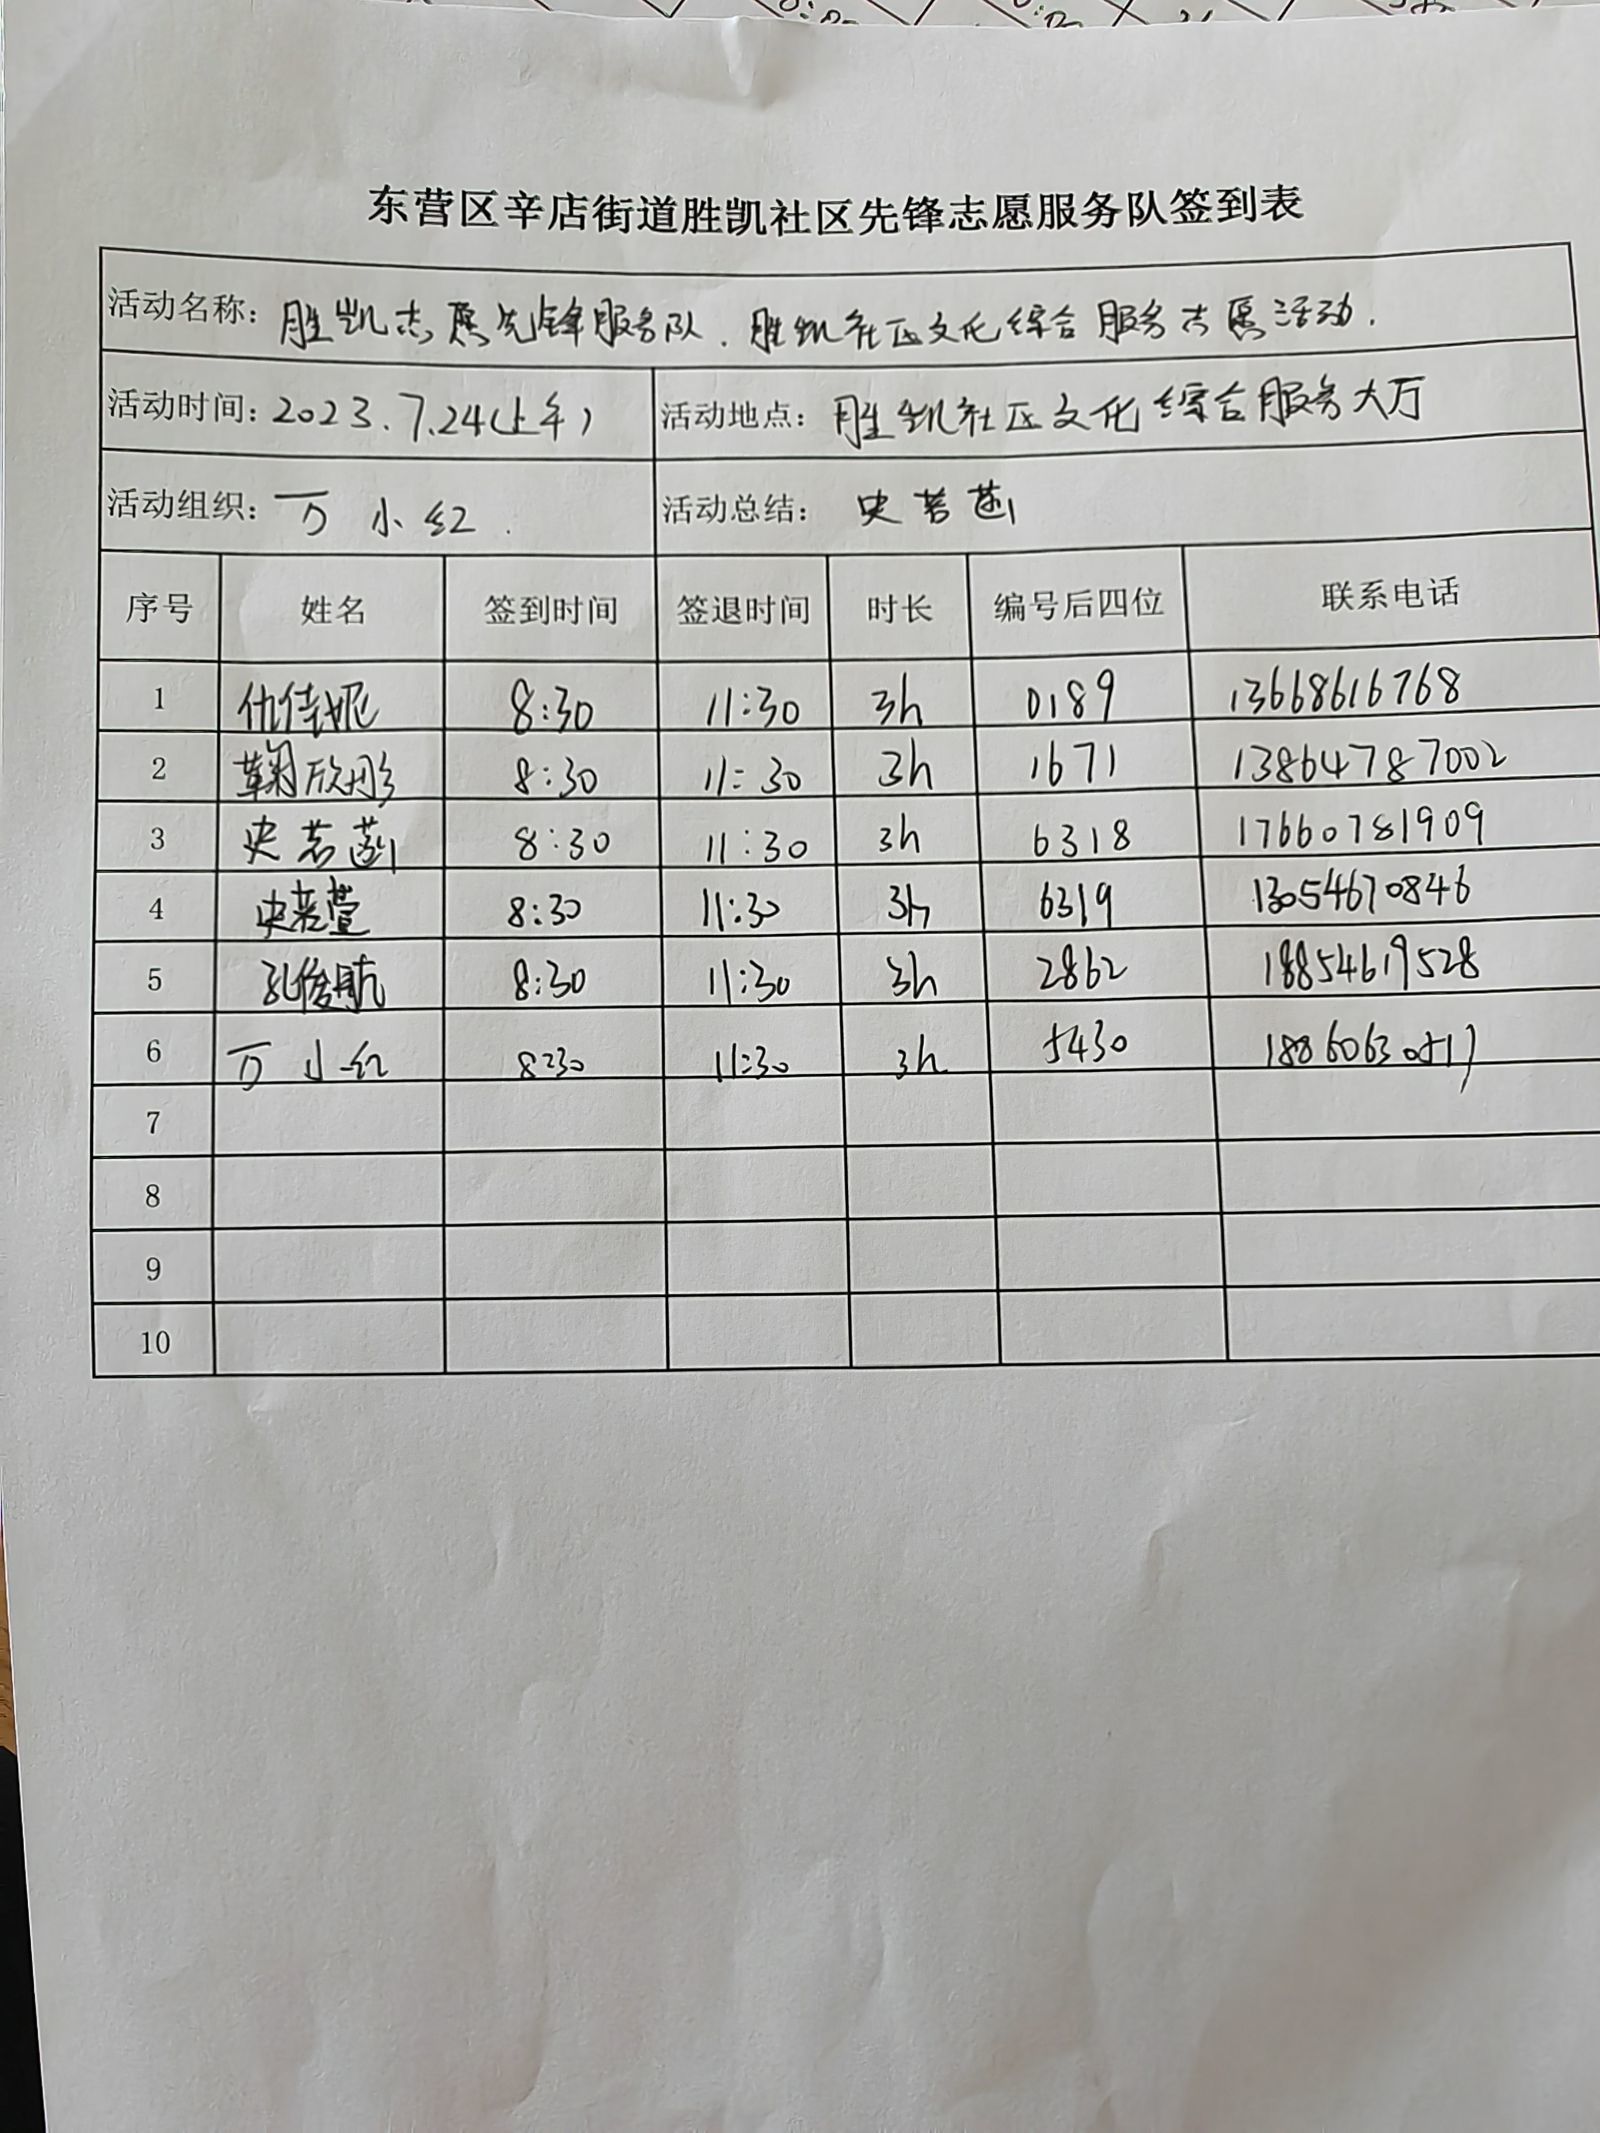 东营区辛店街道胜凯社区先锋志愿服务队签到表
活动名称：胜凯志愿先锋服务队．胜凯社区文化综合服务志愿活动．
活动时间：2023.7.24(上午) 活动地点：胜凯社区文化综合服务大厅
活动组织：万小红． 活动总结：史若菡
序号 姓名 签到时间 签退时间 时长 编号后四位 联系电话
1 仇佳妮 8:30 11:30 3h 0189 13668616768
2 鞠欣彤 8:30 11:30 3h 1671 13864787002
3 史若菡 8:30 11:30 3h 6318 17660781909
4 史若萱 8:30 11:30 3h 6319 13054670846
5 孔俊航 8:30 11:30 3h 2862 18854619528
6 万小红 8:30 11:30 3h 5430 18860630517
7
8
9
10